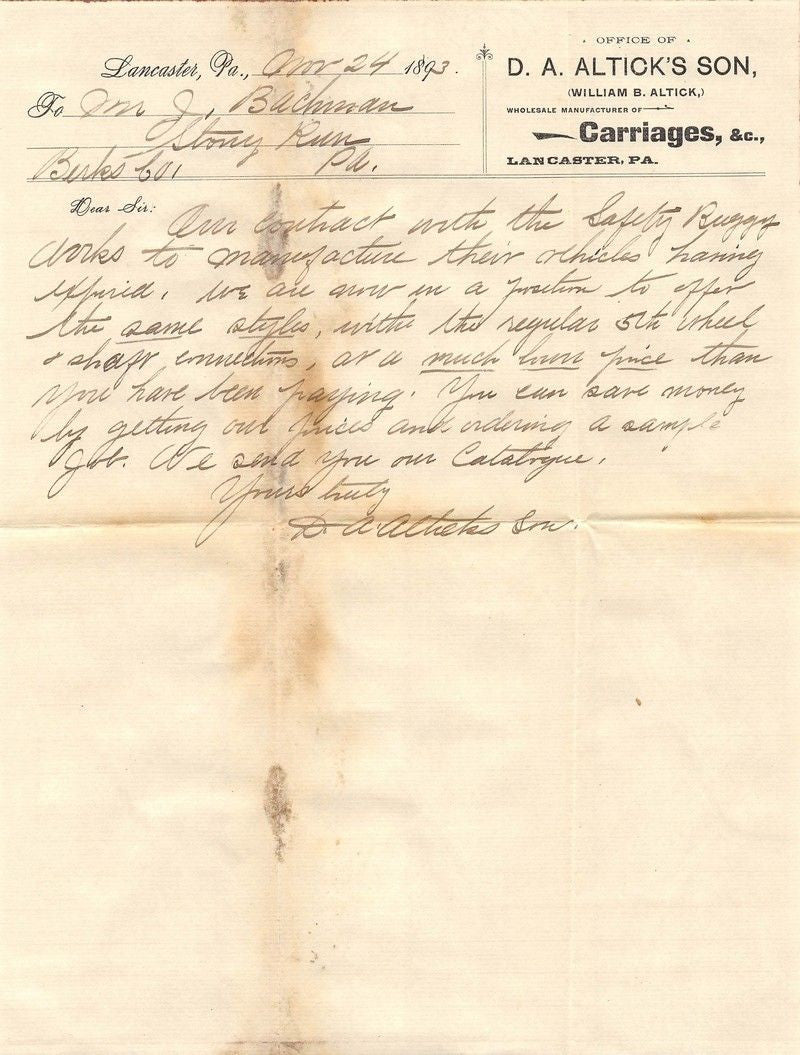 OFFICE OF
D. A. ALTICK'S SON,
(WILLIAM B. ALTICK,)
WHOLESALE MANUFACTURER OF
Carriages, &c.,
LANCASTER, PA.
Lancaster, Pa., Nov 24 1893.
To Wm J. Bachman
Stony Run
Berks Co. Pa.
Dear Sir: Our contract with the Safety Buggy
Works to manufacture their vehicles having
expired, we are now in a position to offer
the same styles, with the regular 5th wheel
& shaft connections, at a much lower price than
you have been paying. You can save money
by getting our prices and ordering a sample
job. We send you our Catalogue.
Yours truly
D A Alticks Son.